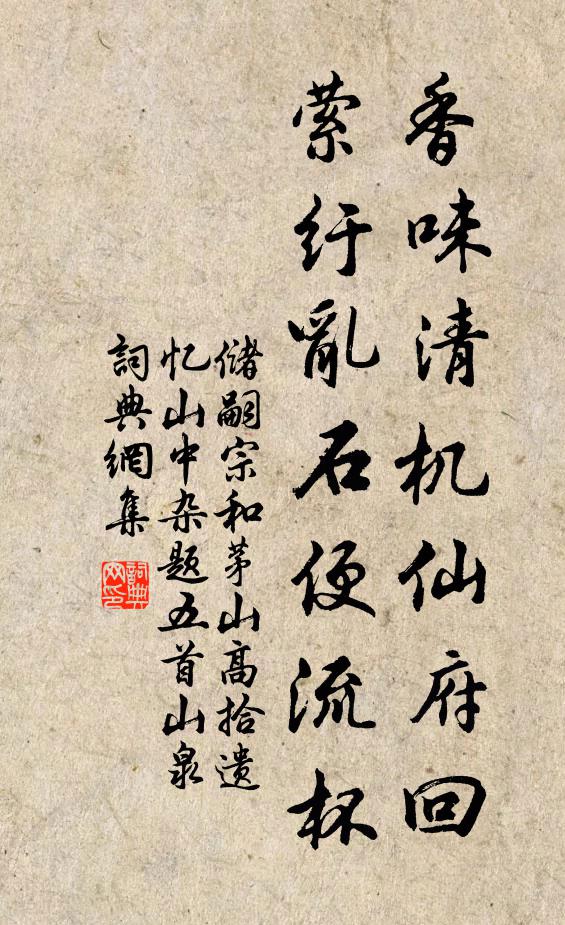 香味清机仙府回
萦纡乱石便流杯
储嗣宗和茅山高拾遗
忆山中杂题五首山泉
詞典網集
詞典
网印